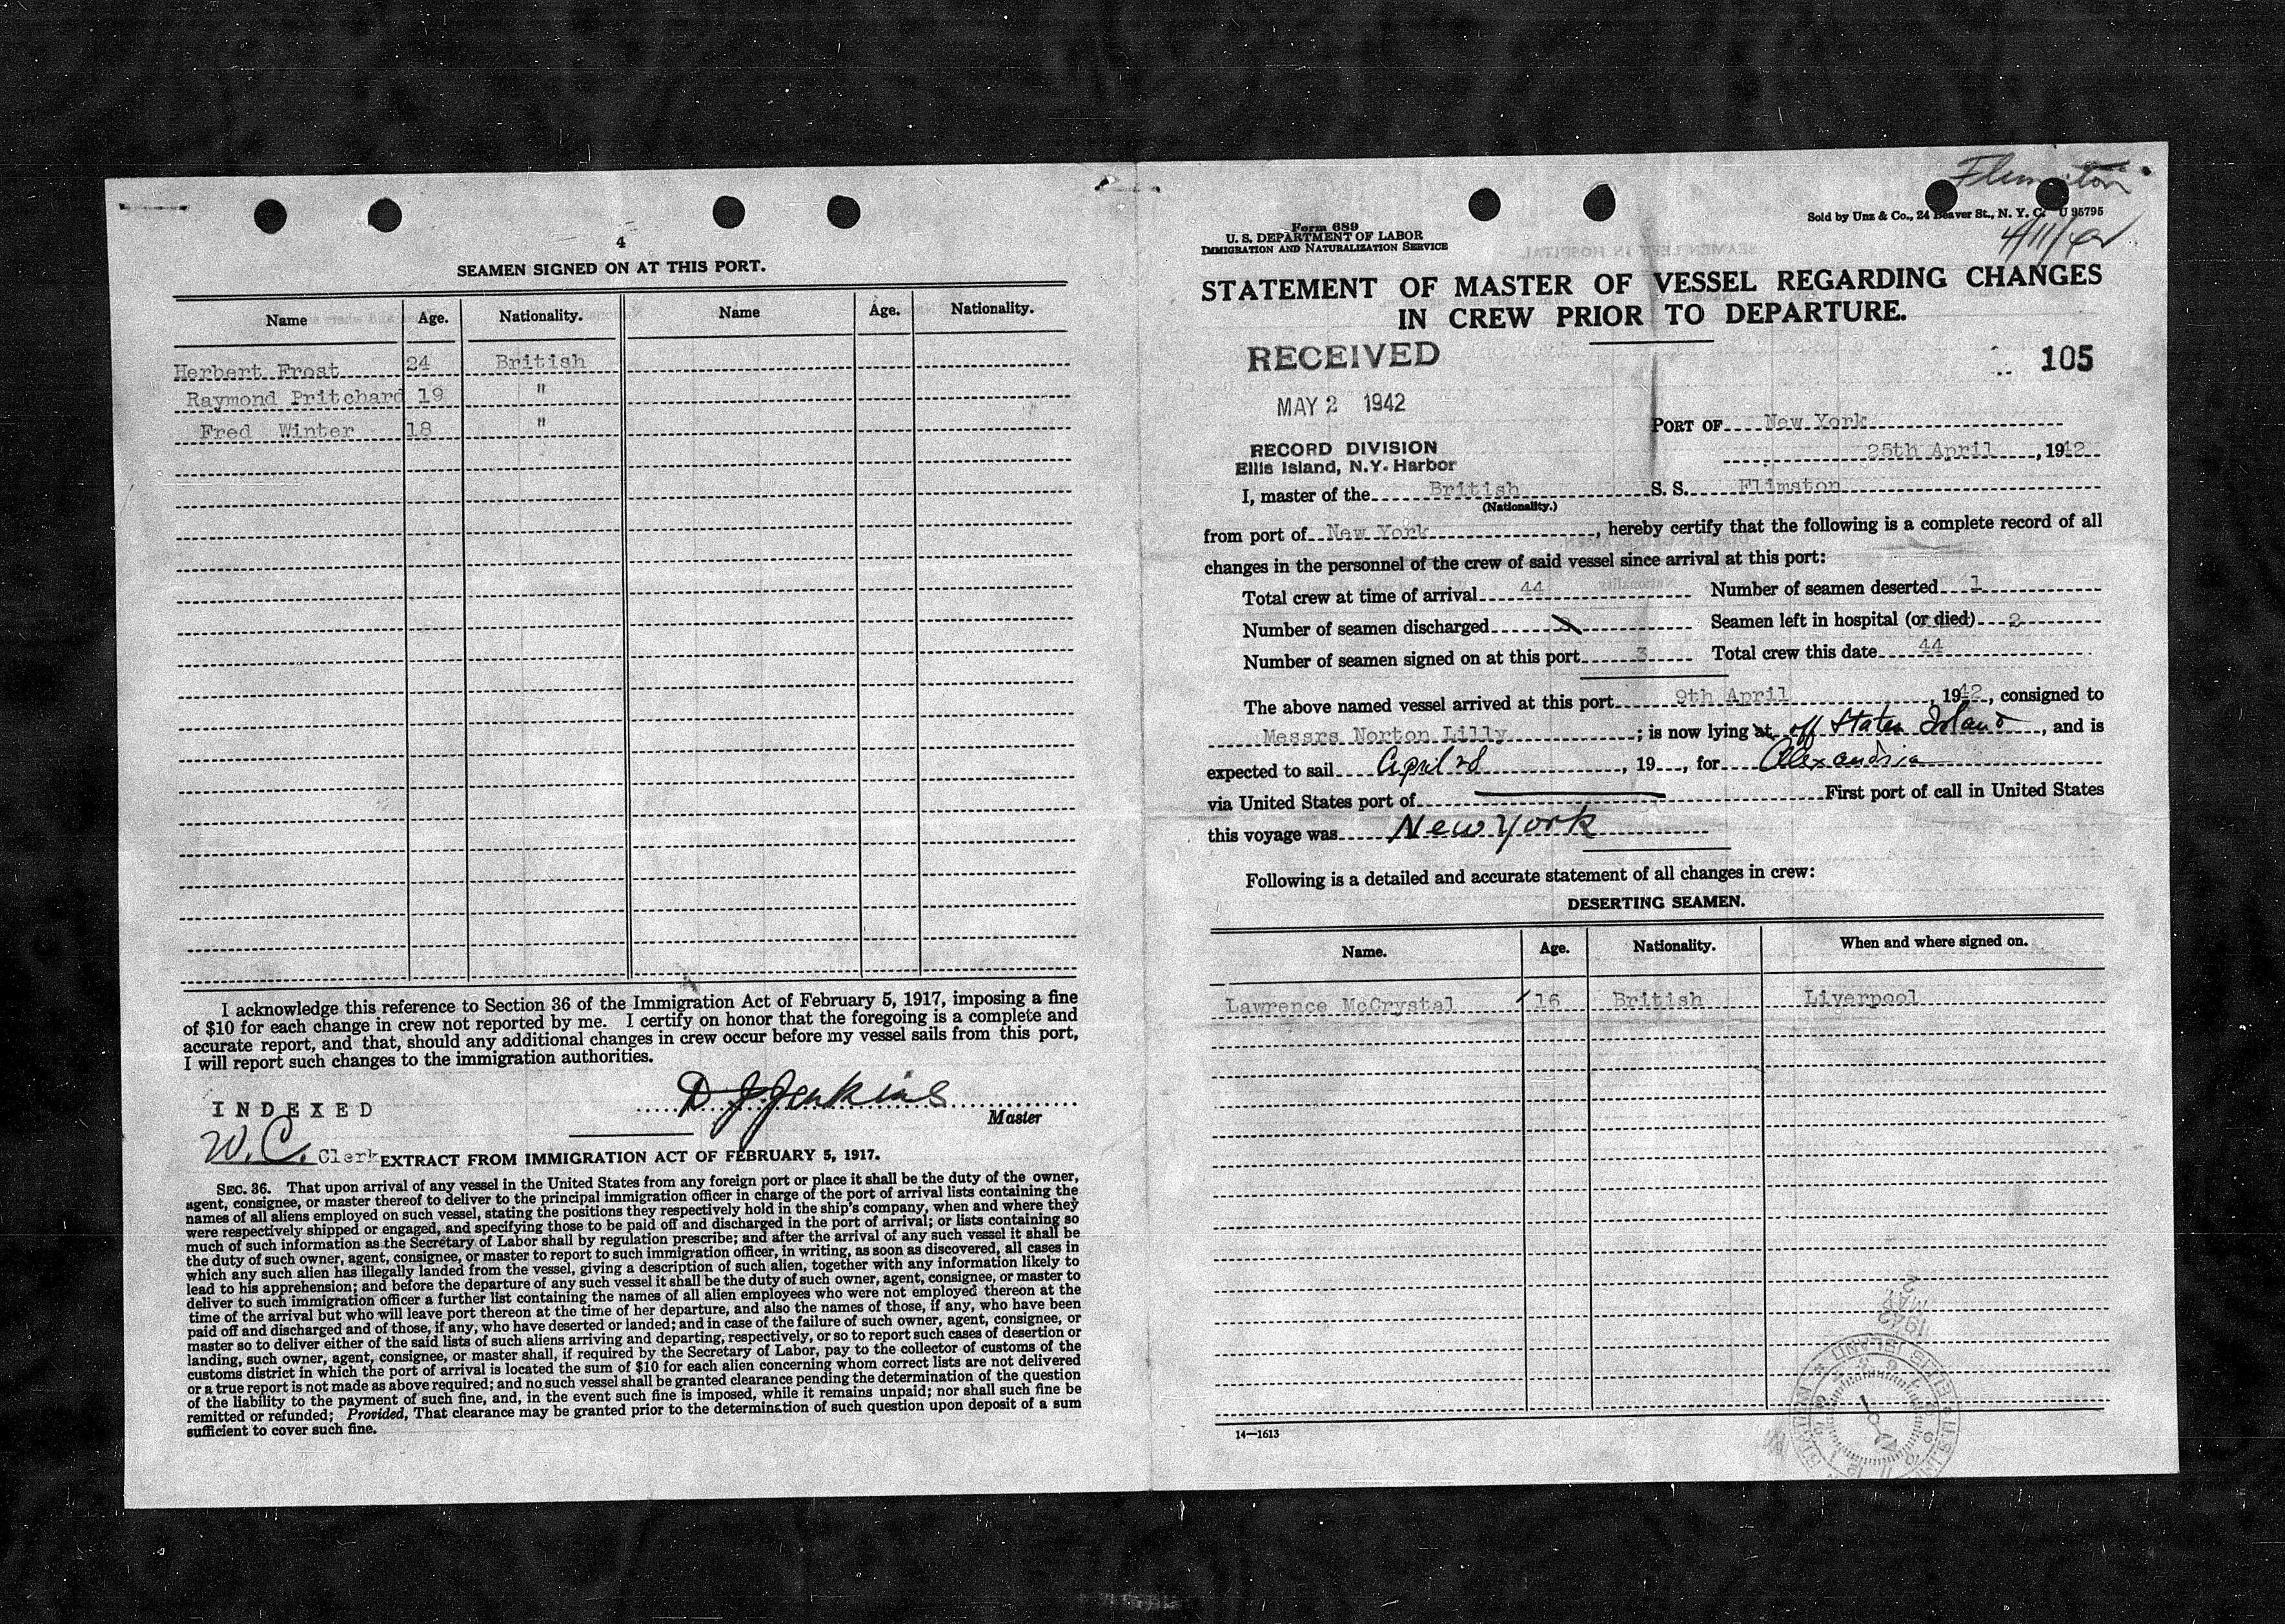 4
SEAMEN SIGNED ON AT THIS PORT.
Name Age. Nationality. Name Age. Nationality.
Herbert Frost 24 British
Raymond Pritchard 19 "
Fred Winter 18 "
I acknowledge this reference to Section 36 of the Immigration Act of February 5, 1917, imposing a fine
of $10 for each change in crew not reported by me. I certify on honor that the foregoing is a complete and
accurate report, and that, should any additional changes in crew occur before my vessel sails from this port,
I will report such changes to the immigration authorities.
INDEXED
D J Jenkins
Master
W.C. Clerk
EXTRACT FROM IMMIGRATION ACT OF FEBRUARY 5, 1917.
SEC. 36. That upon arrival of any vessel in the United States from any foreign port or place it shall be the duty of the owner,
agent, consignee, or master thereof to deliver to the principal immigration officer in charge of the port of arrival lists containing the
names of all aliens employed on such vessel, stating the positions they respectively hold in the ship's company, when and where they
were respectively shipped or engaged, and specifying those to be paid off and discharged in the port of arrival; or lists containing so
much of such information as the Secretary of Labor shall by regulation prescribe; and after the arrival of any such vessel it shall be
the duty of such owner, agent, consignee, or master to report to such immigration officer, in writing, as soon as discovered, all cases in
which any such alien has illegally landed from the vessel, giving a description of such alien, together with any information likely to
lead to his apprehension; and before the departure of any such vessel it shall be the duty of such owner, agent, consignee, or master to
deliver to such immigration officer a further list containing the names of all alien employees who were not employed thereon at the
time of the arrival but who will leave port thereon at the time of her departure, and also the names of those, if any, who have been
paid off and discharged and of those, if any, who have deserted or landed; and in case of the failure of such owner, agent, consignee, or
master so to deliver either of the said lists of such aliens arriving and departing, respectively, or so to report such cases of desertion or
landing, such owner, agent, consignee, or master shall, if required by the Secretary of Labor, pay to the collector of customs of the
customs district in which the port of arrival is located the sum of $10 for each alien concerning whom correct lists are not delivered
or a true report is not made as above required; and no such vessel shall be granted clearance pending the determination of the question
of the liability to the payment of such fine, and, in the event such fine is imposed, while it remains unpaid; nor shall such fine be
remitted or refunded; Provided, That clearance may be granted prior to the determination of such question upon deposit of a sum
sufficient to cover such fine.
Flimston
Form 689
U. S. DEPARTMENT OF LABOR
IMMIGRATION AND NATURALIZATION SERVICE
Sold by Unz & Co., 24 Beaver St., N. Y. C. U 95795
4/11/42
STATEMENT OF MASTER OF VESSEL REGARDING CHANGES
IN CREW PRIOR TO DEPARTURE.
RECEIVED
105
MAY 2 1942
PORT OF New York
RECORD DIVISION
25th April, 1942
Ellis Island, N.Y. Harbor
I, master of the British S. S. Flimston
(Nationality.)
from port of New York, hereby certify that the following is a complete record of all
changes in the personnel of the crew of said vessel since arrival at this port:
Total crew at time of arrival 44 Number of seamen deserted 1
Number of seamen discharged Seamen left in hospital (or died) 2
Number of seamen signed on at this port 3 Total crew this date 44
The above named vessel arrived at this port 9th April, 1942, consigned to
Messrs Norton Lilly; is now lying at off Staten Island, and is
expected to sail April 28, 19, for Alexandria
via United States port of First port of call in United States
this voyage was New York
Following is a detailed and accurate statement of all changes in crew:
DESERTING SEAMEN.
Name. Age. Nationality. When and where signed on.
Lawrence McCrystal 16 British Liverpool
14—1613
1942
MAY
2
ELLIS ISLAND